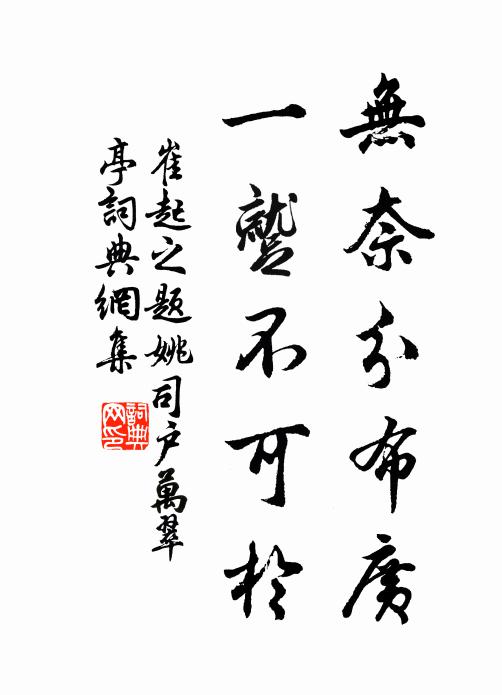 無奈分布廣
一蹵不可於
崔起之題姚司户萬翠
亭詞典網集
詞典
网印